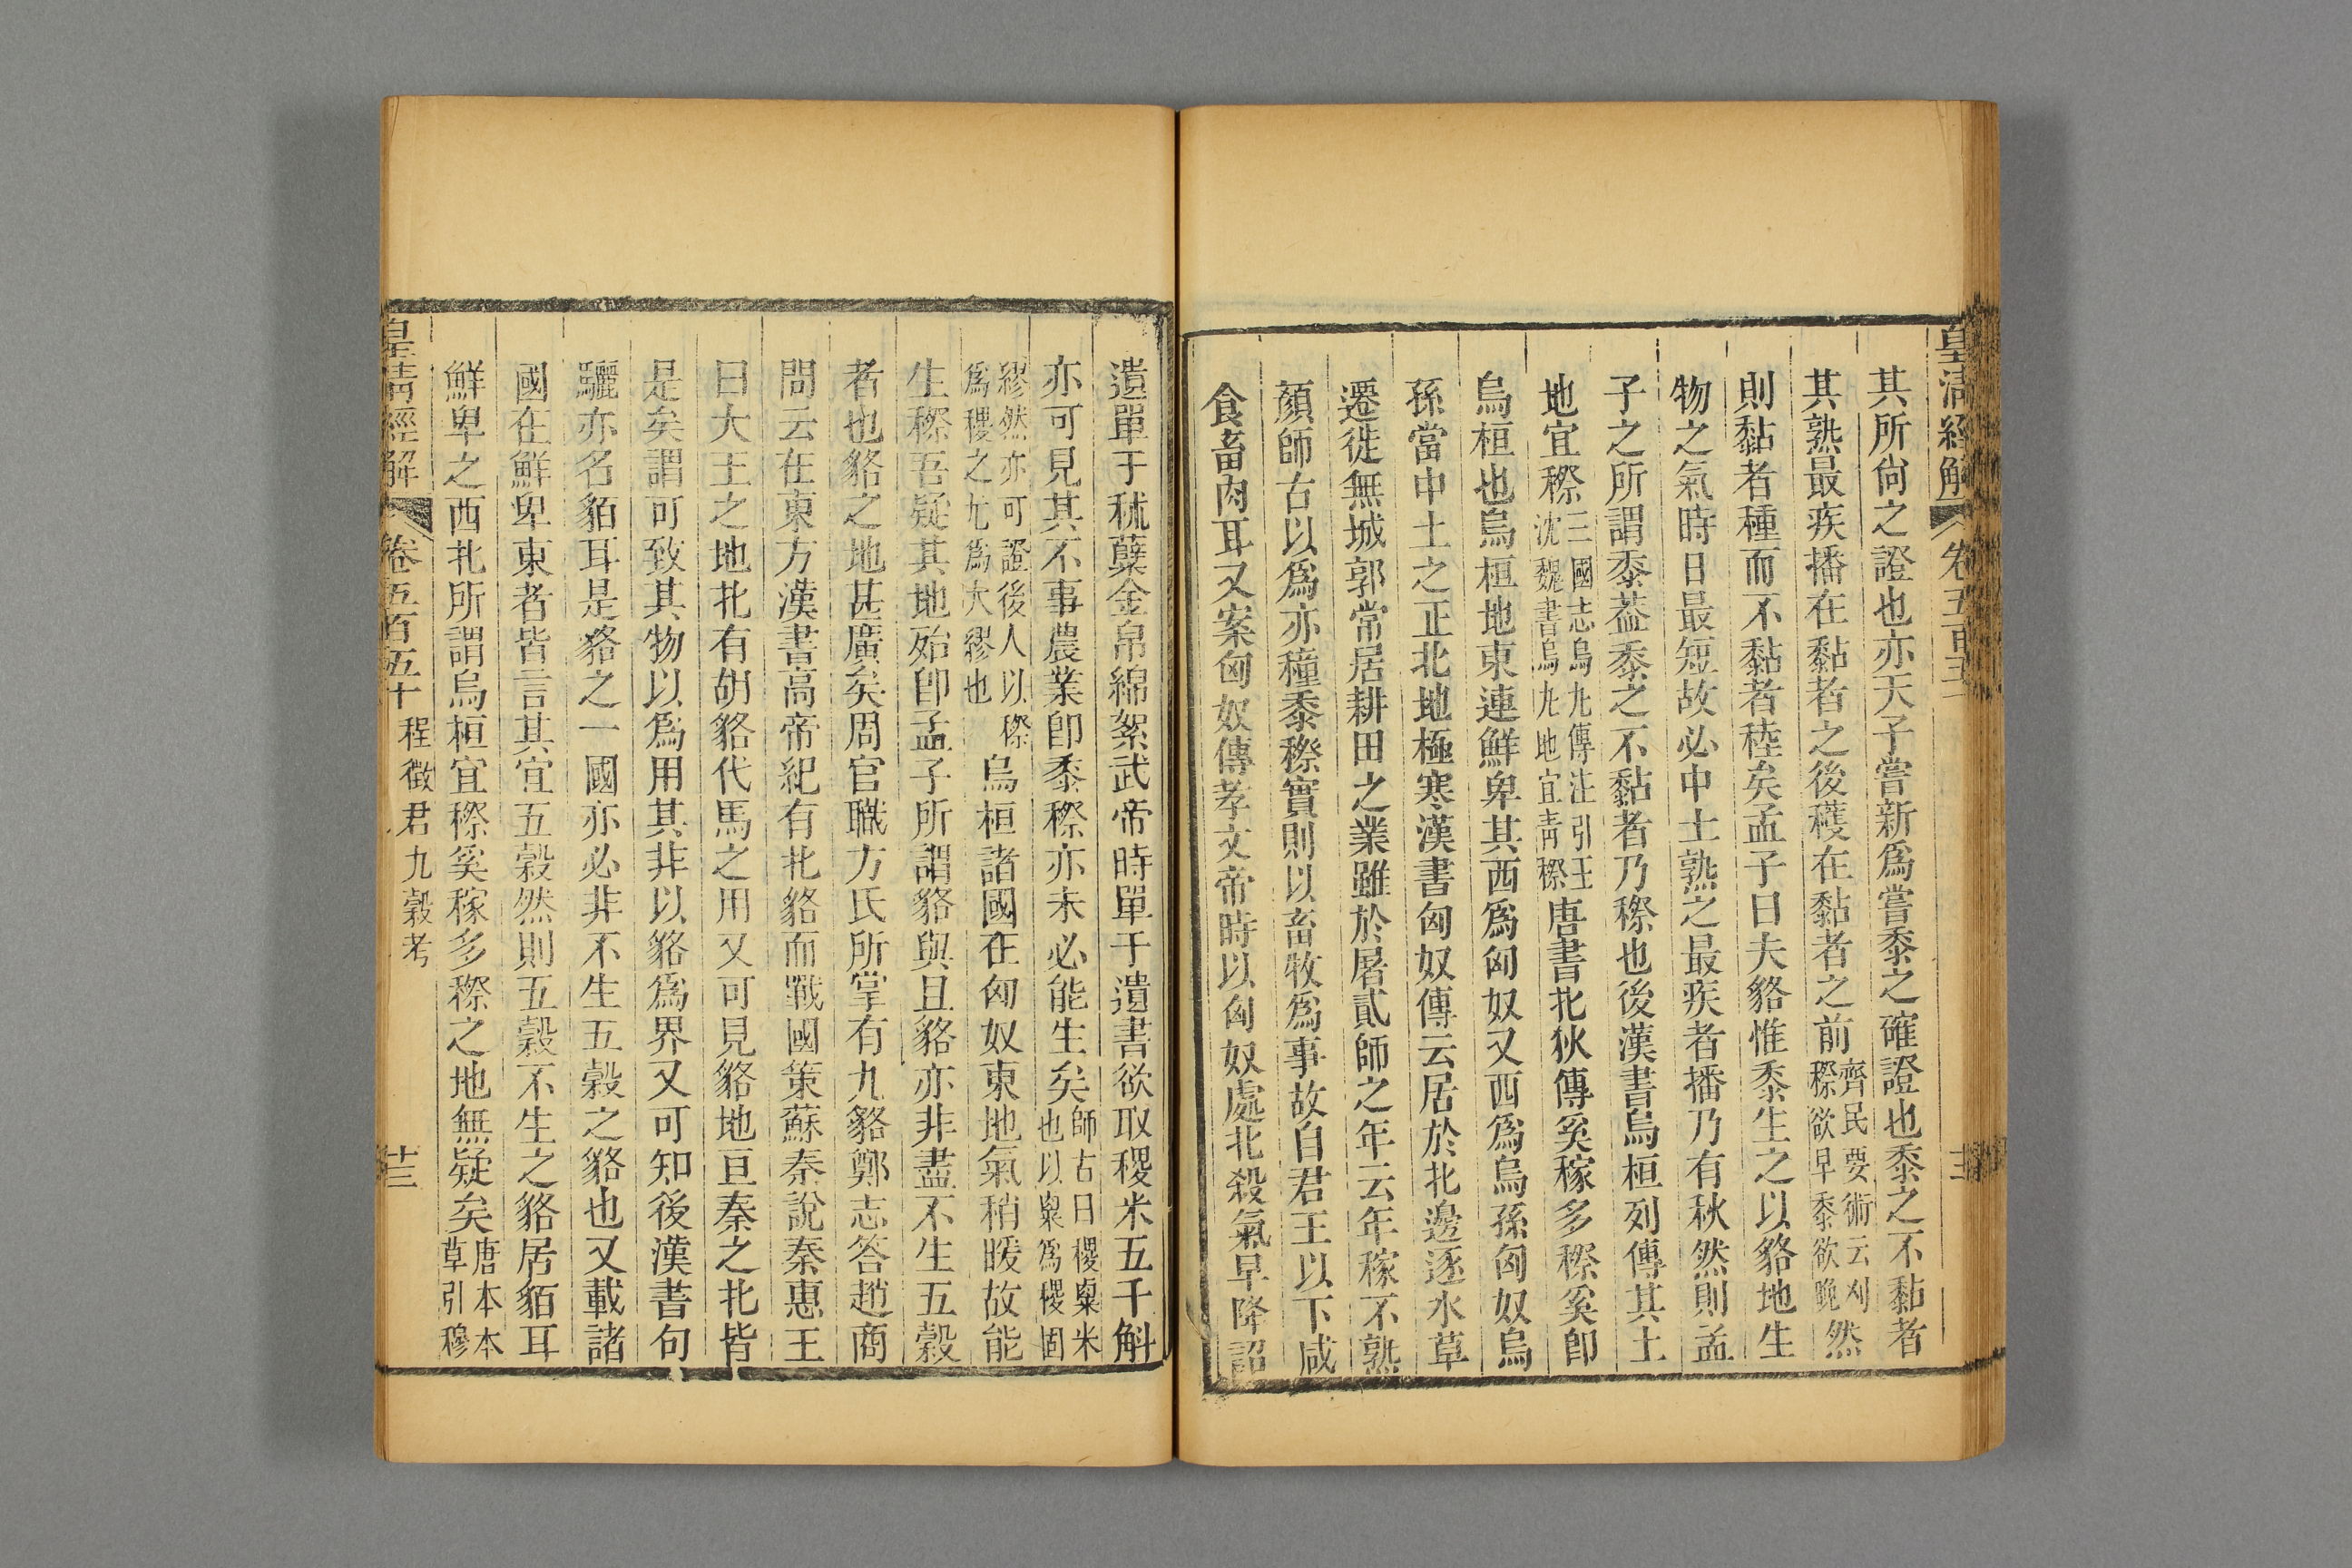 皇清經解 卷五百五十 十二
其所尙之證也亦天子嘗新爲嘗黍之確證也黍之不黏者
其熟最疾播在黏者之後穫在黏者之前齊民要術云刈穄欲早黍欲晚然
則黏者種而不黏者稑矣孟子曰夫貉惟黍生之以貉地生
物之氣時日最短故必中土熟之最疾者播乃有秋然則孟
子之所謂黍葢黍之不黏者乃穄也後漢書烏桓列傳其土
地宜穄三國志烏九傳注引王沈魏書烏九地宜靑穄唐書北狄傳奚稼多穄奚卽
烏桓也烏桓地東連鮮卑其西爲匈奴又西爲烏孫匈奴烏
孫當中土之正北地極寒漢書匈奴傳云居於北邊逐水草
遷徙無城郭常居耕田之業雖於屠貳師之年云年稼不熟
顏師古以爲亦穜黍穄實則以畜牧爲事故自君王以下咸
食畜肉耳又案匈奴傳孝文帝時以匈奴處北殺氣早降詔
遺單于秫糵金帛綿絮武帝時單于遺書欲取稷米五千斛
亦可見其不事農業卽黍穄亦未必能生矣師古曰稷粟米也以粟爲稷固
繆然亦可證後人以穄爲稷之尤爲大繆也烏桓諸國在匈奴東地氣稍暖故能
生穄吾疑其地殆卽孟子所謂貉與且貉亦非盡不生五穀
者也貉之地甚廣矣周官職方氏所掌有九貉鄭志答趙商
問云在東方漢書高帝紀有北貉而戰國策蘇秦說秦惠王
曰大王之地北有胡貉代馬之用又可見貉地亘秦之北皆
是矣謂可致其物以爲用其非以貉爲界又可知後漢書句
驪亦名貊耳是貉之一國亦必非不生五穀之貉也又載諸
國在鮮卑東者皆言其宜五穀然則五穀不生之貉居貊耳
鮮卑之西北所謂烏桓宜穄奚稼多穄之地無疑矣唐本本草引穆
皇清經解 卷五百五十 程徵君九穀考 十三